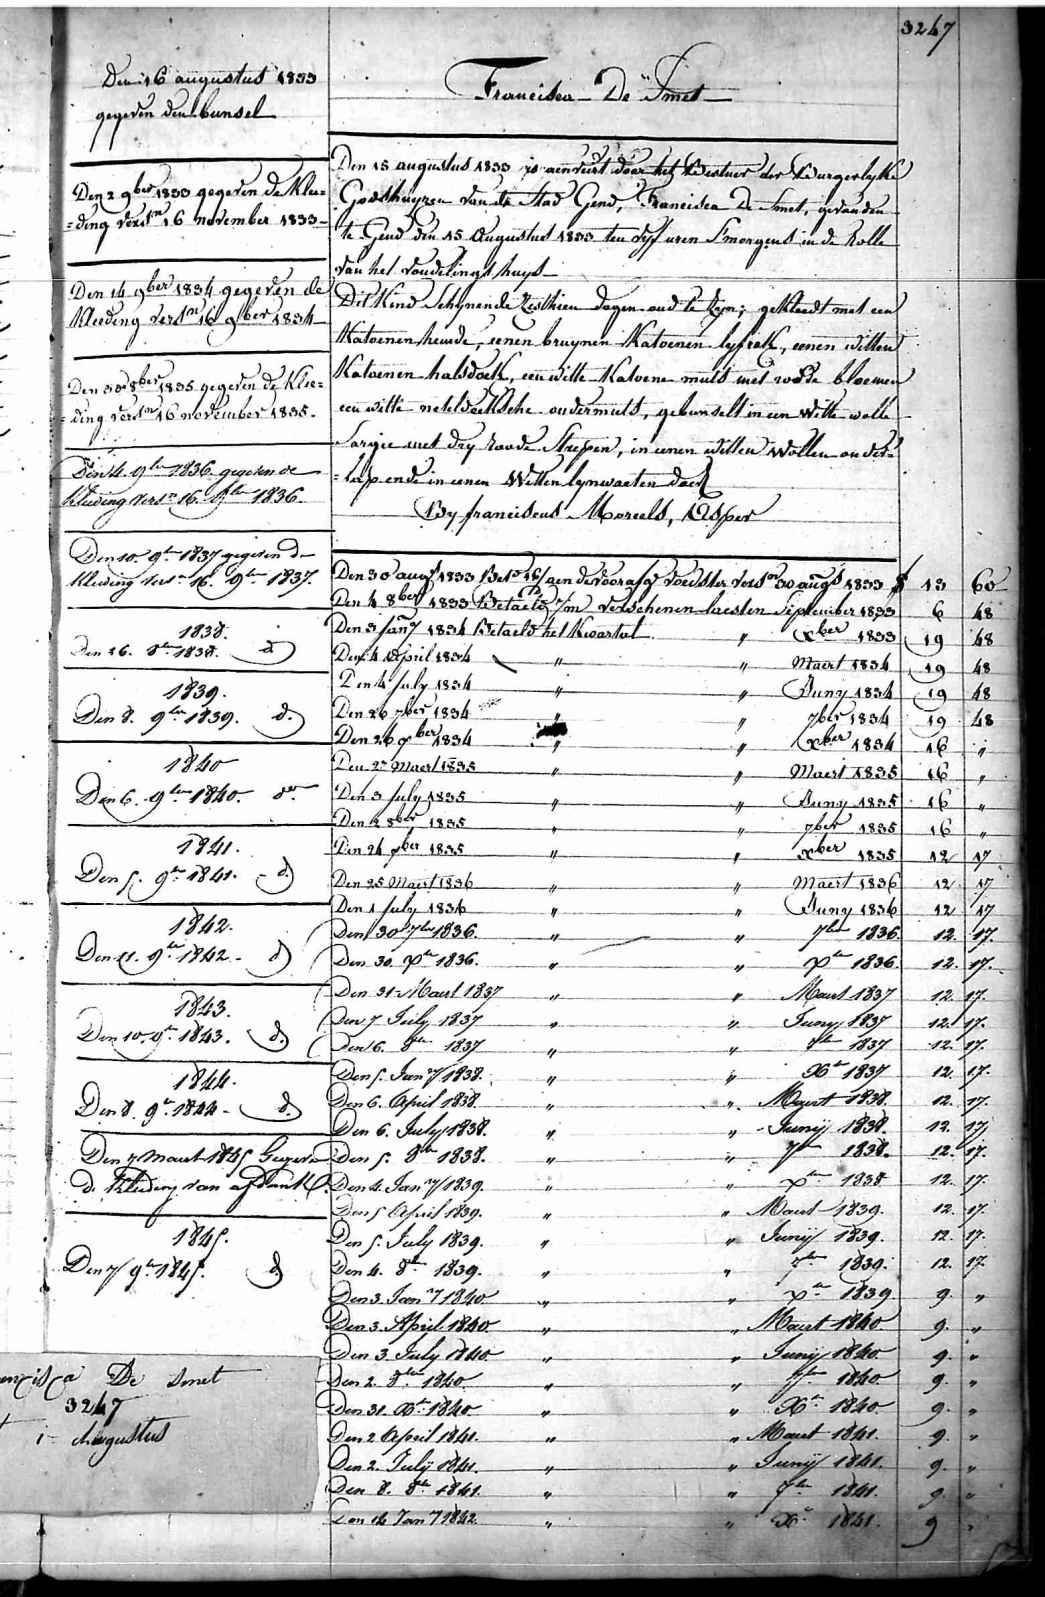 3247
Den 16 augustus 1833
gegeven den bunsel
Den 2 9ber 1833 gegeven de klee=
=ding versn 16 november 1833
Den 14 9ber 1834 gegeven de
kleeding versn 16 9ber 1834
Den 30 8ber 1835 gegeven de klee=
=ding versn 16 november 1835.
Den 4. 9ber 1836. gegeven de
kleeding versn 16. 9ber 1836.
Den 10. 9er 1837 gegeven de
kleeding versn 16. 9ber 1837.
1838.
Den 26. 8er 1838. d
1839.
Den 8. 9ber 1839. d.
1840
Den 6. 9ber 1840. do
1841.
Den 5. 9er 1841. d
1842.
Den 11. 9er 1842. d
1843.
Den 10. 9er 1843. d.
1844.
Den 8. 9er 1844 d.
Den 7 Maert 1845 Gegeven
de kleeding van
1845.
Den 7 9er 1845. d
Francisca De Smet
Den 15 augustus 1833 is aenveird door het Bestuer der Burgerlyke
Godshuyzen van de Stad Gend, Francisca De Smet, gevonden
te Gend den 15 Augustus 1833 ten vyf uren Smorgens in de Rolle
van het vondelings huys
Dit Kind Schynende Zesthien dagen oud te zyn; gekleedt met een
Katoenen hemde, eenen bruynen Katoenen lyfrok, eenen witten
Katoenen halsdoek, een witte Katoene muts met roode bloemen
een witte neteldoeksche ondermuts, gebunselt in een witte wolle
Sargie met dry roode Strepen, in eenen witten wollen onder=
=leep ende in eenen Witten lynwaeten doek
By franciscus Moreels, Asper
Den 30 augt 1833 Beto aen de voorafg voedster versn 30 augs 1833 f 13 60
Den 4 8ber 1833 Betaeld verschenen laesten September 1833 6 48
Den 3 Jany 1834 Betaeld het Kwartal " xber 1833 19 48
Den 4 April 1834 " " Maert 1834 19 48
Den 4 July 1834 " " Juny 1834 19 48
Den 26 7ber 1834 " " 7ber 1834 19 48
Den 26 xber 1834 " " xber 1834 16 "
Den 27 Maert 1835 " " Maert 1835 16 "
Den 3 July 1835 " " Juny 1835 16 "
Den 2 8ber 1835 " " 7ber 1835 16 "
Den 24 xber 1835 " " xber 1835 12 17
Den 25 Maert 1836 " " Maert 1836 12 17
Den 1 July 1836 " " Juny 1836 12 17
Den 30 7ber 1836. " " 7ber 1836. 12. 17.
Den 30. Xer 1836. " " Xer 1836. 12. 17.
Den 31 Maert 1837 " " Maert 1837 12. 17.
Den 7 July 1837 " " Juny 1837 12. 17.
Den 6. 8er 1837 " " 7er 1837 12. 17.
Den 5. Jany 1838. " " Xer 1837 12. 17.
Den 6. April 1838. " " Maert 1838. 12. 17.
Den 6. July 1838. " " Junij 1838. 12. 17
Den 5. 8er 1838. " " 7er 1838. 12. 17.
Den 4. Jany 1839. " " Xer 1838 12. 17.
Den 5 April 1839. " " Maert 1839. 12. 17.
Den 5. July 1839. " " Junij 1839. 12. 17.
Den 4. 8er 1839. " " 7er 1839. 12. 17
Den 3. Jany 1840 " " Xer 1839 9. "
Den 3. April 1840. " " Maert 1840 9. "
Den 3. July 1840. " " Junij 1840 9. "
Den 2. 8er 1840. " " 7er 1840 9. "
Den 31. Xer 1840. " " Xer 1840 9. "
Den 2 April 1841. " " Maert 1841. 9. "
Den 2. July 1841. " " Junij 1841. 9. "
Den 8. 8er 1841. " " 7er 1841. 9. "
Den 14 Jany 1842. " " Xr 1841. 9 "
De Smet
3247
Augustus